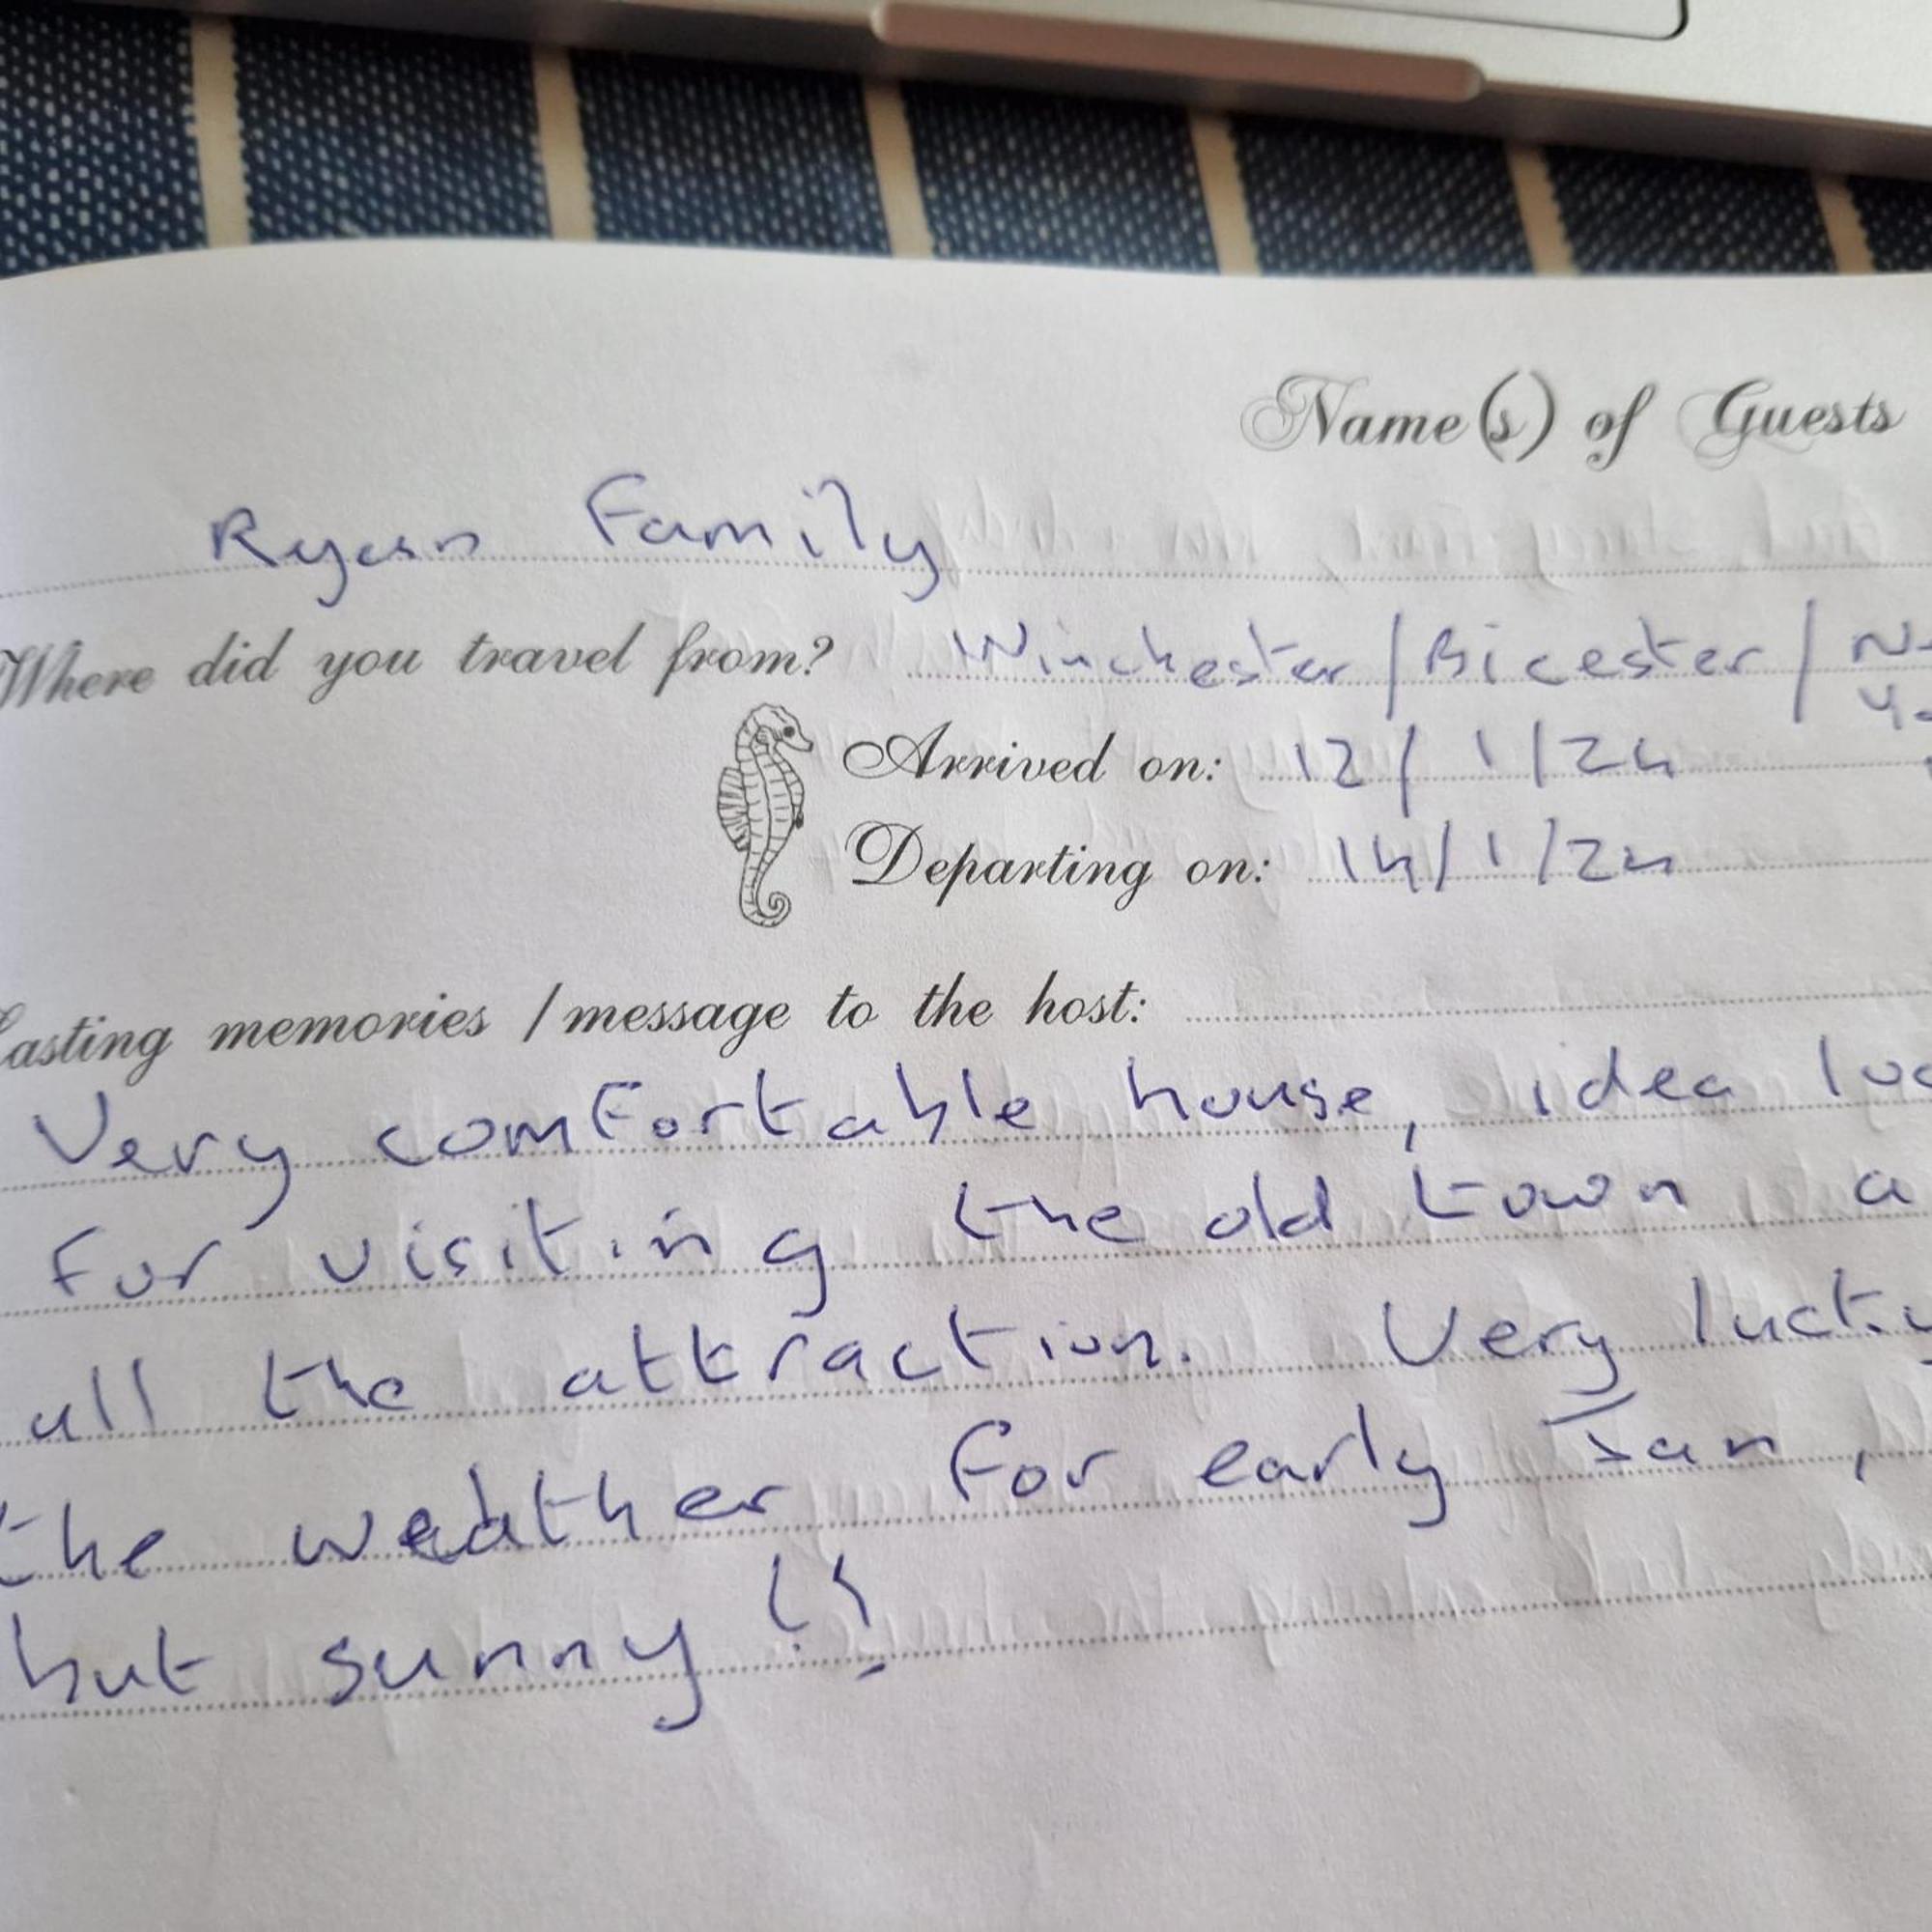 Name(s) of Guests
Ryan Family
Where did you travel from? Winchester / Bicester /
Arrived on: 12/1/24
Departing on: 14/1/24
Lasting memories / message to the host:
Very comfortable house, idea
for visiting the old town
all the attraction. Very lucky
the weather for early Jan,
but sunny!!